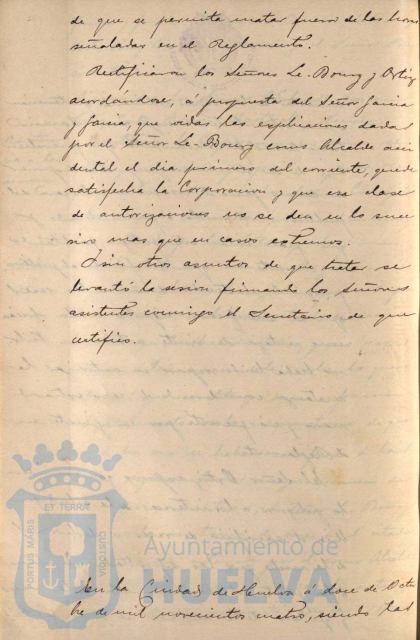 de que se permita matar fuera de las horas
señaladas en el Reglamento.
Rectificaron los Señores Le-Bourg y Ortiz
acordándose, á propuesta del Señor Garcia
y Garcia, que oidas las explicaciones dadas
por el Señor Le-Bourg como Alcalde acci
dental el dia primero del corriente, quede
satisfecha la Corporacion y que esa clase
de autorizaciones no se den en lo suce
sivo mas que en casos extremos.
I sin otros asuntos de que tratar se
levantó la sesion firmando los Señores
asistentes conmigo el Secretario de que
certifico.
PORTUS MARIS ET TERRÆ CUSTODIA
Ayuntamiento de
HUELVA
En la Ciudad de Huelva á doce de Octu
bre de mil novecientos cuatro, siendo las